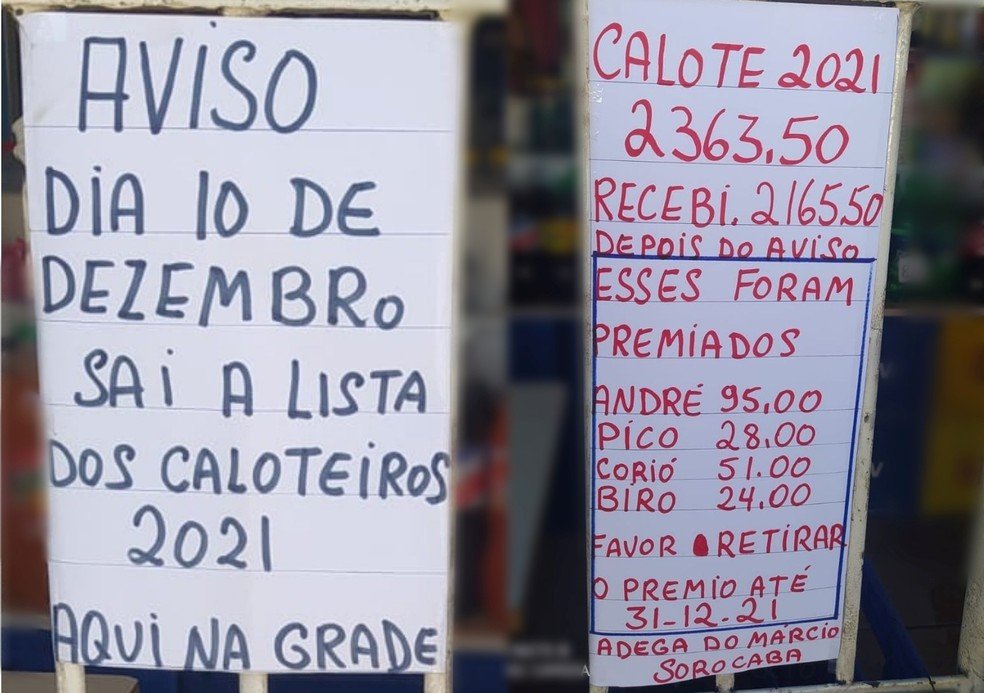 AVISO
DIA 10 DE
DEZEMBRO
SAI A LISTA
DOS CALOTEIROS
2021
AQUI NA GRADE
CALOTE 2021
2363.50
RECEBI. 2165.50
DEPOIS DO AVISO
ESSES FORAM
PREMIADOS
ANDRÉ 95.00
PICO 28.00
CORIÓ 51.00
BIRO 24.00
FAVOR RETIRAR
O PREMIO ATÉ
31-12-21
ADEGA DO MÁRCIO
SOROCABA